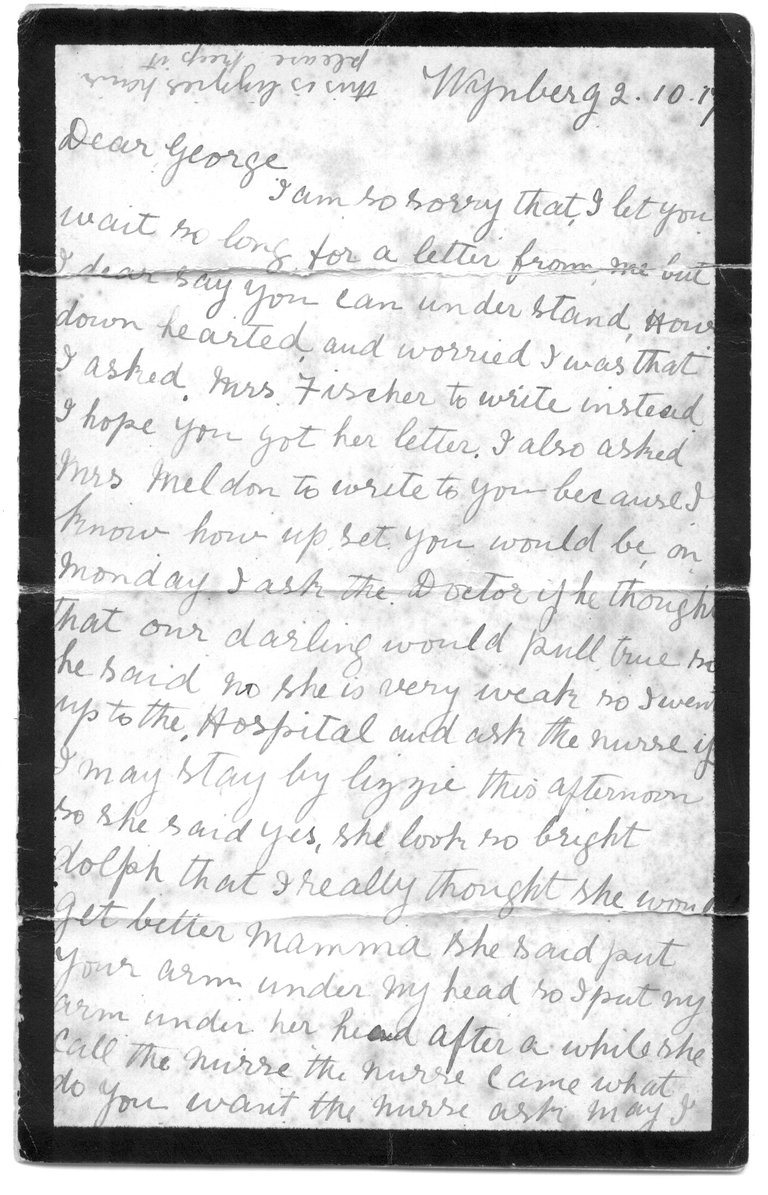 this is lizzies hair
please keep it
Wynberg 2.10.17
Dear George
I am so sorry that, I let you
wait so long for a letter from me but
I dear say you can under stand, How
down hearted, and worried I was that
I asked, Mrs Fischer to write instead
I hope you got her letter. I also asked
Mrs Meldon to write to you because I
know how up set you would be, on
Monday I ask the Doctor if he thought
that our darling would pull true so
he said no she is very weak so I went
up to the, Hospital and ask the nurse if
I may stay by lizzie this afternoon
so she said yes, she look so bright
dolph that I really thought she would
get better mamma she said put
your arm under my head so I put my
arm under her head after a while she
call the nurse the nurse came what
do you want the nurse ask may I